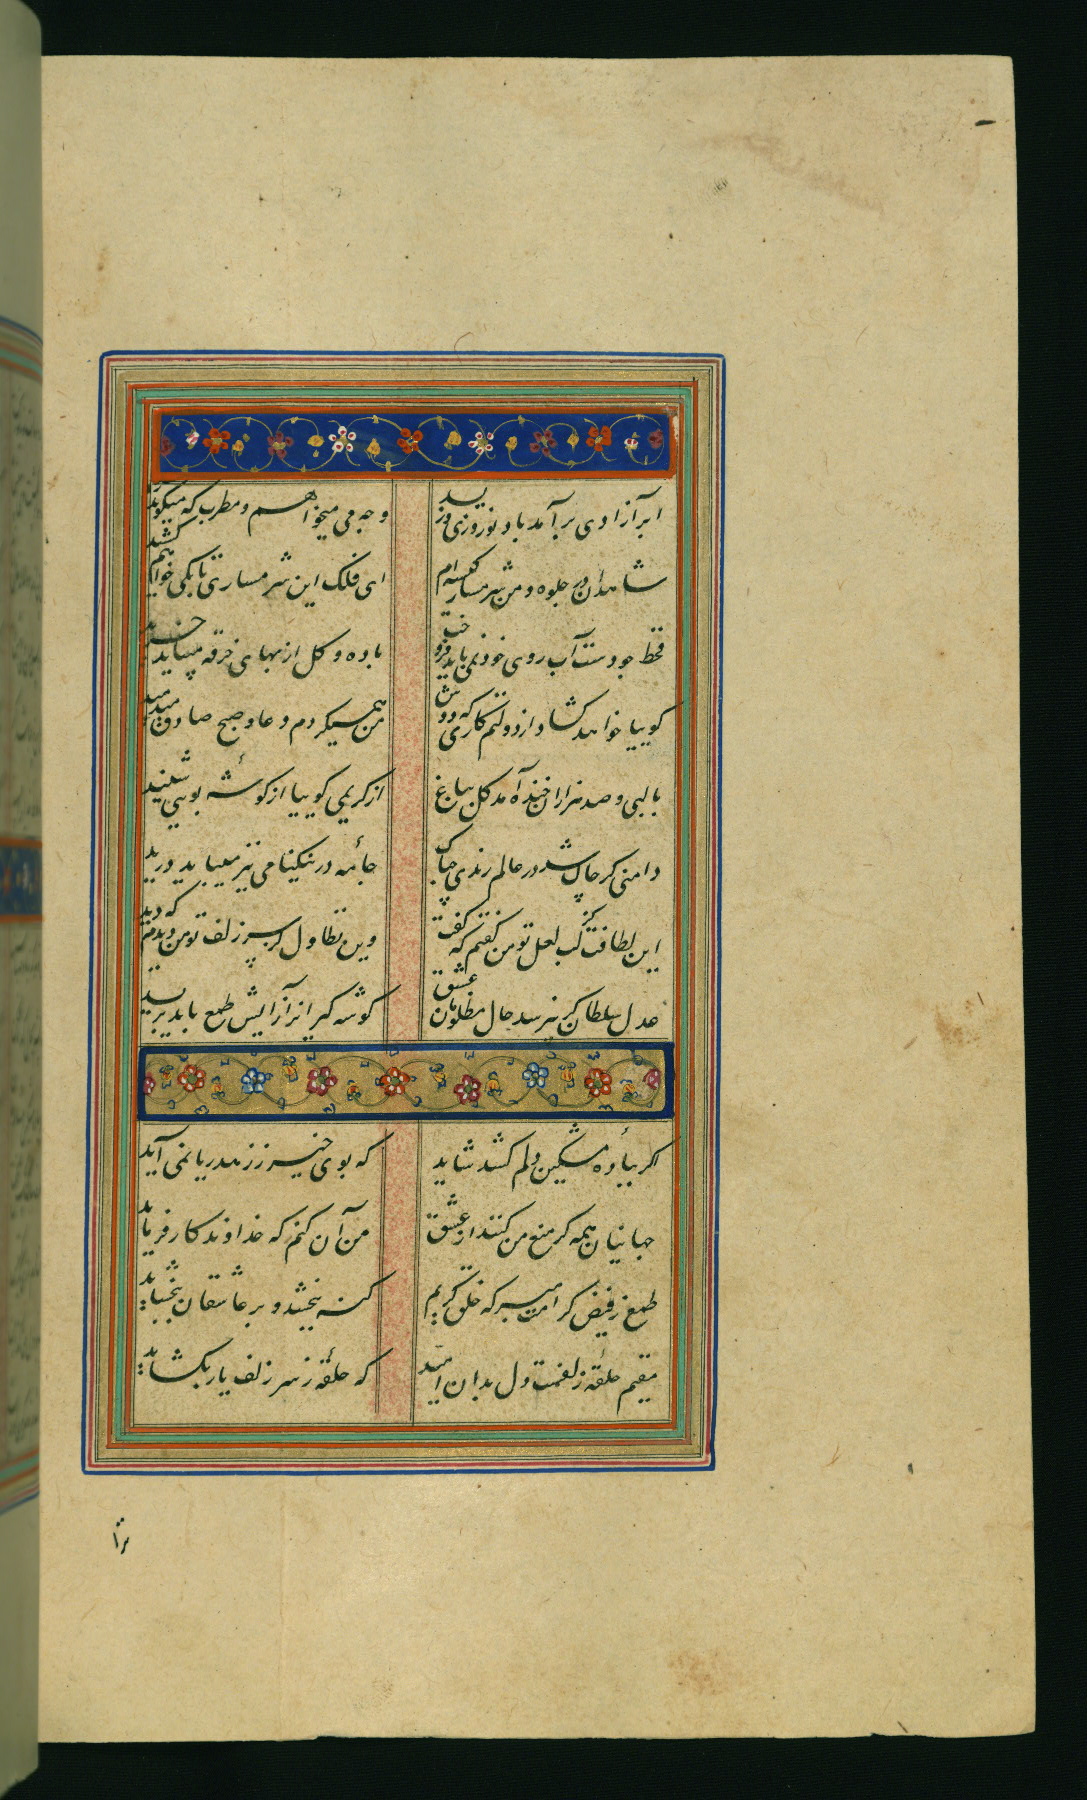 ابر آزادی برآمد باد نوروزی وزید
وجه می میخواهم و مطرب که میگوید رسید
شاهدان در جلوه و من شرمسار کیسه‌ام
ای فلک این شرمساری تا بکی خواهم کشید
قحط جودست آب روی خود نمی باید فروخت
باده و گل از بهای خرقه میباید خرید
گوییا خواهد گشاد از دولتم کاری که دوش
من همیکردم دعا و صبح صادق میدمید
با لبی و صد هزاران خنده آمد گل بباغ
از کریمی گوییا از گوشهٔ بویی شنید
دامنی گر چاک شد در عالم رندی چه باک
جامهٔ در نیکنامی نیز میباید درید
این لطافت کز لب لعل تو من گفتم که گفت
وین تطاول کز سر زلف تو من دیدم که دید
عدل سلطان گر نپرسد حال مظلومان عشق
گوشه گیر انرا ز آسایش طمع باید برید
اگر ببادهٔ مشکین دلم کشد شاید
که بوی خیر ز زهد ریا نمی آید
جهانیان همه گر منع من کنند از عشق
من آن کنم که خداوند کار فرماید
طمع ز فیض کرامت مبر که خلق کریم
گنه ببخشد و بر عاشقان ببخشاید
مقیم حلقهٔ زلفت دل بدان امید
که حلقهٔ ز سر زلف یار بگشاید
ترا